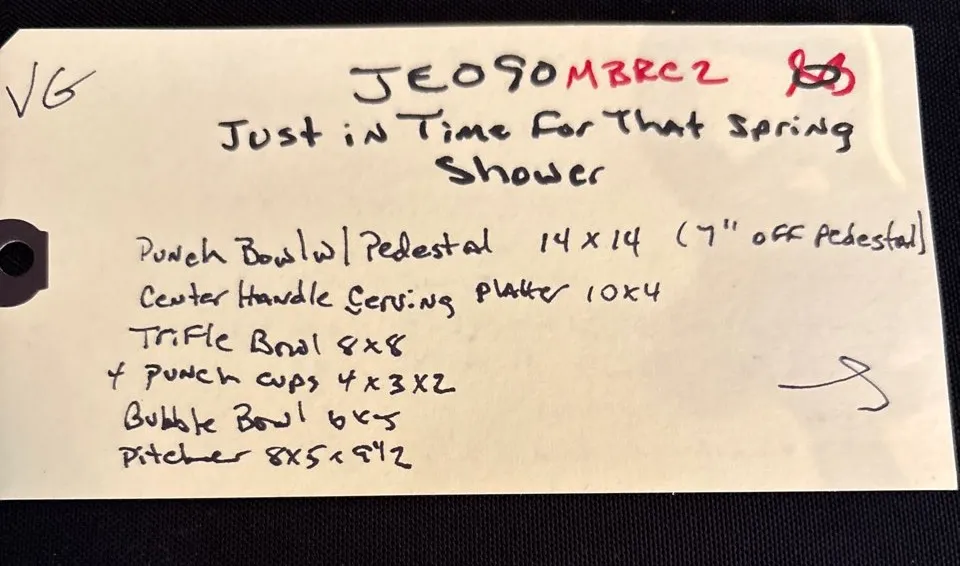 VG
JE090 MBRC2
Just in Time For That Spring
Shower
Punch Bowl w/ Pedestal 14 x 14 (7" off Pedestal)
Center Handle Serving Platter 10x4
Trifle Bowl 8x8
4 Punch cups 4x3x2
Bubble Bowl 6x5
Pitcher 8x5x9½